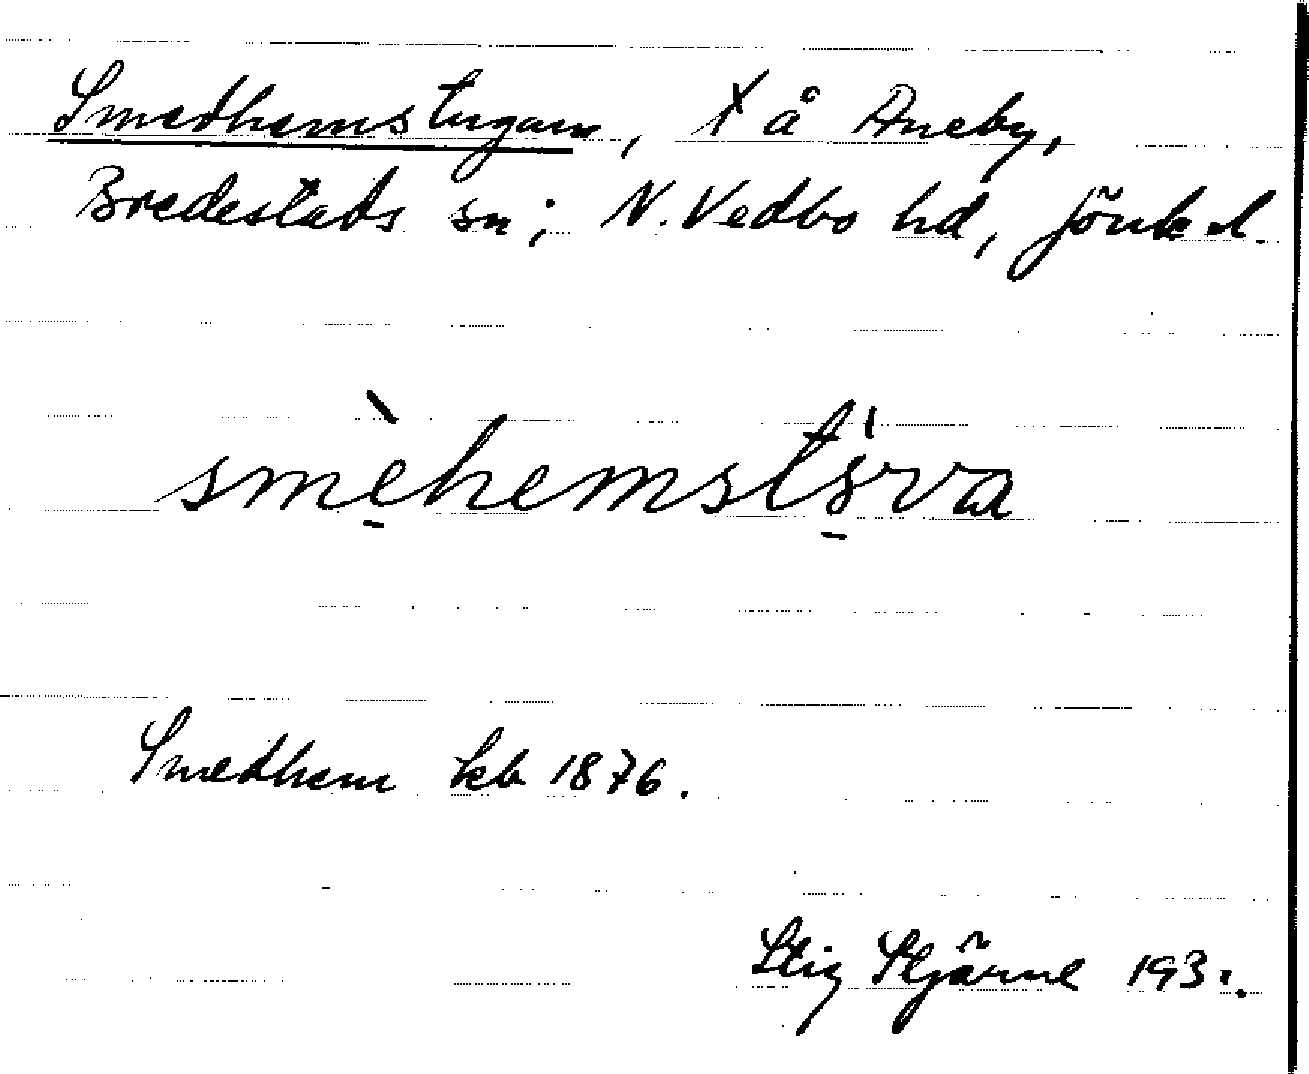 Smedhemstugan, X å Aneby,
Bredestads sn; N. Vedbo hd, Jönk. l.
smèhemstörva
Smedhem kb 1876.
Stig Stjärne